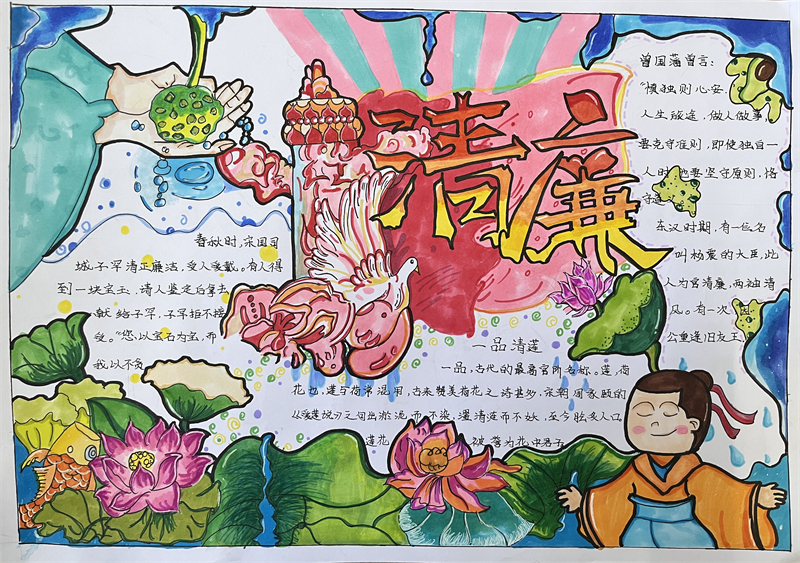 清廉
曾国藩曾言：
“慎独则心安．
人生旅途，做人做事
要克守准则，即使独自一
人时 也要坚守原则，恪
守道
东汉时期，有一位名
叫杨震的大臣，此
人为官清廉，两袖清
风。有一次 因
公重逢旧友王
春秋时，宋国司
城子罕清正廉洁，受人爱戴。有人得
到一块宝玉，请人鉴定后拿去
献给子罕，子罕拒不接
受。“您以宝石为宝，而
我以不贪
一品清莲
一品，古代的最高官阶名称。莲，荷
花也，莲与荷常混用，古来赞美荷花之诗甚多，宋朝周家颐的
从爱莲说力之句出淤泥而不染，濯清涟而不妖，至今脍炙人口
莲花 被誉为花中君子